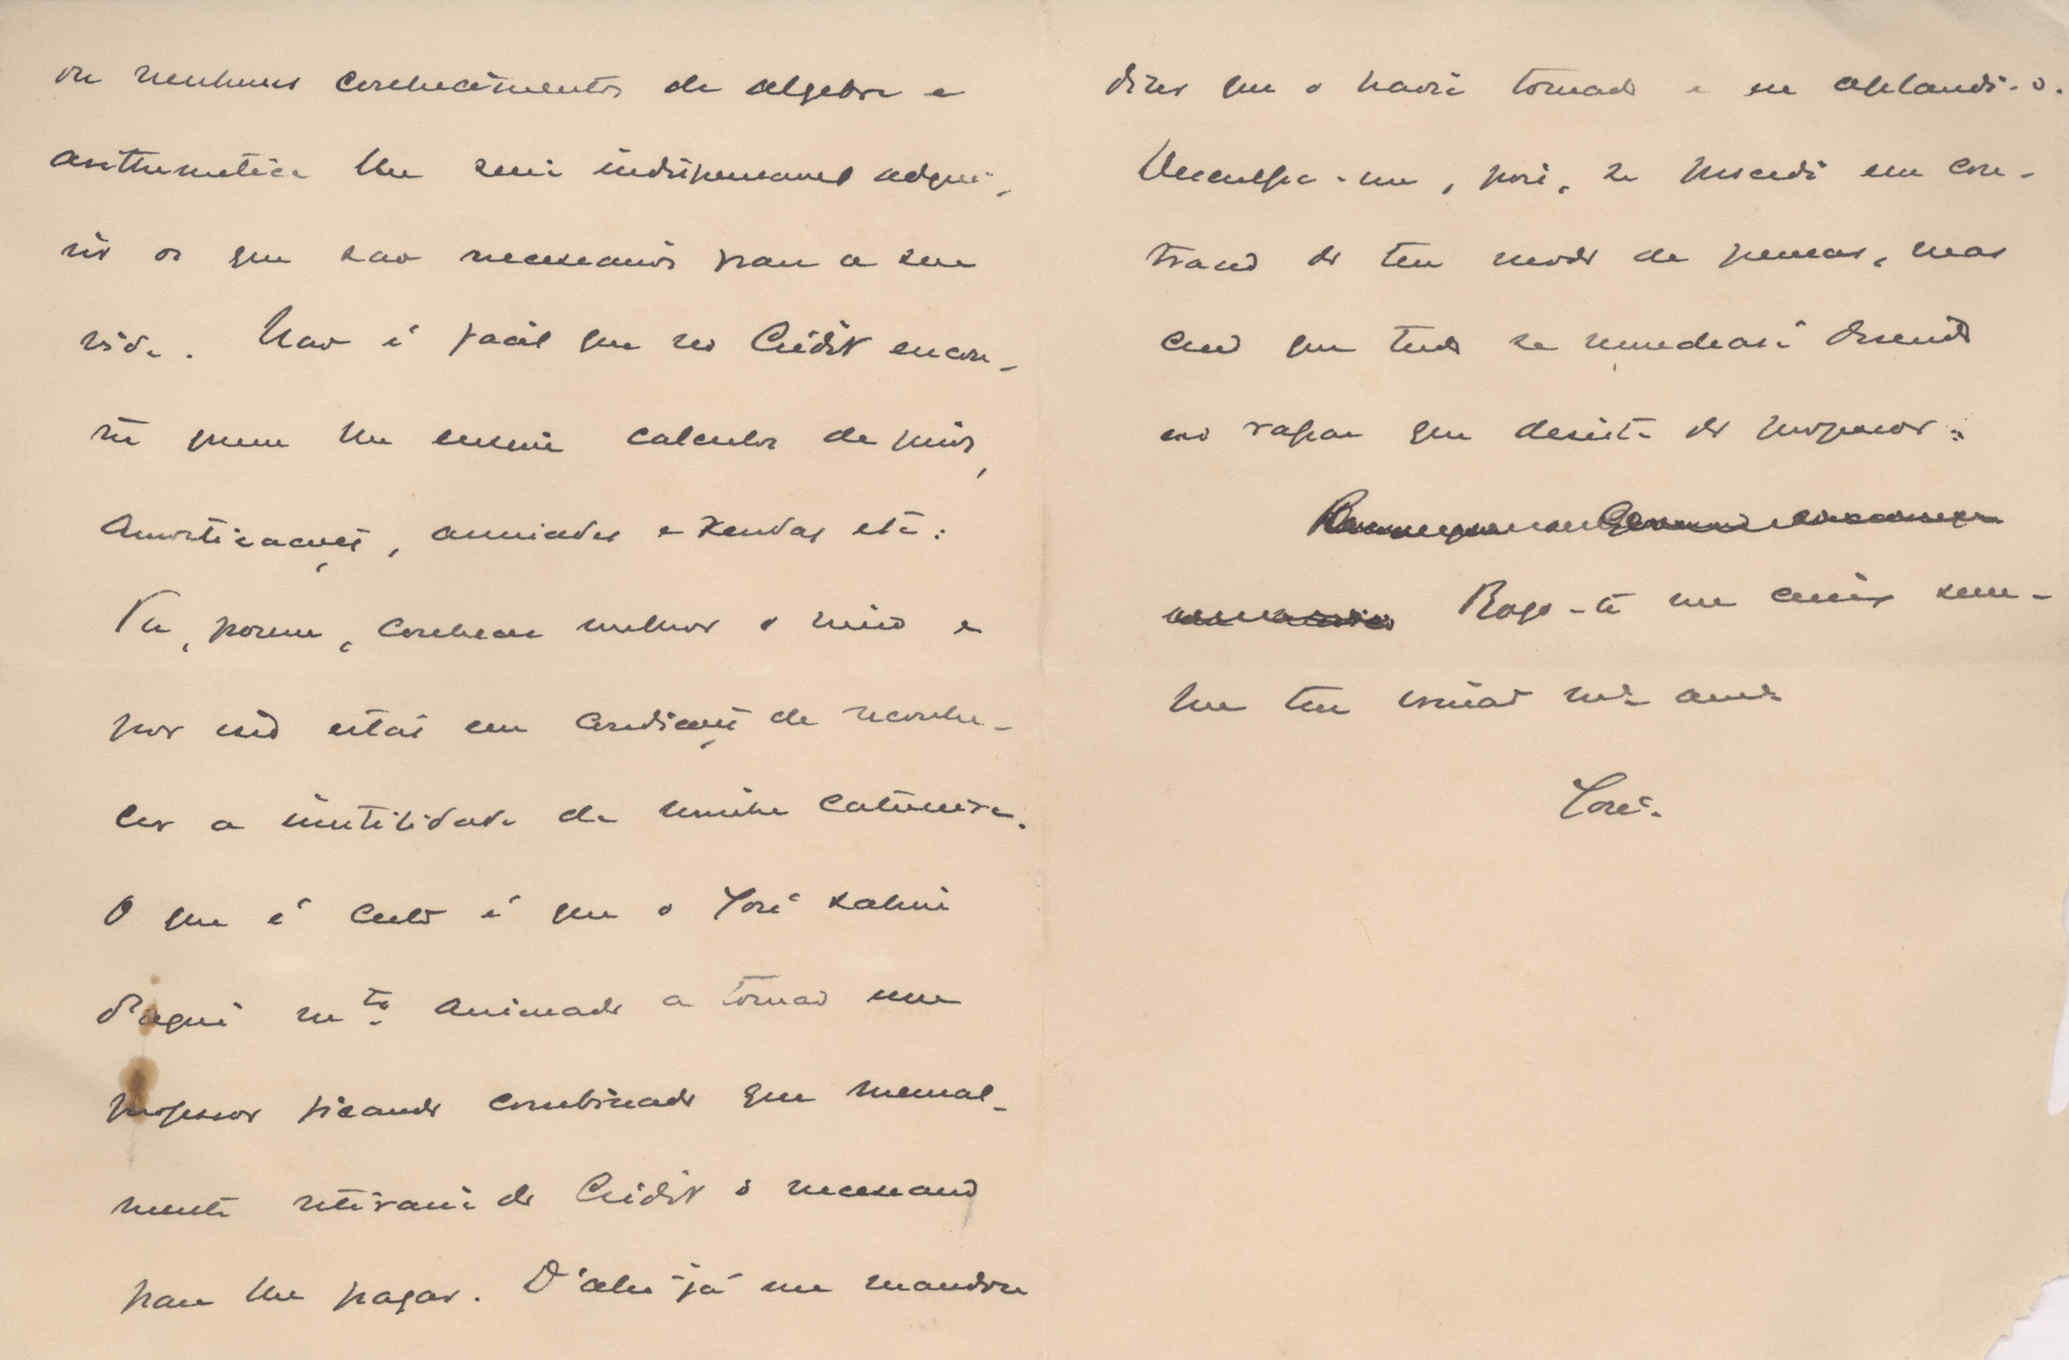 ou nenhuns conhecimentos de algebra e
arithmetica lhe seria indispensavel adqui-
rir os que são necessarios para a sua
vida. Não é facil que no Crédit encon-
tre quem lhe ensine calculos de juros,
amortizações, annuidades e rendas etc.
Tu, porem, conheces melhor o meio e
por isso estás em condições de reconhe-
cer a inutilidade da minha catureira.
O que é certo é que o José sahiu
d'aqui mto animado a tomar um
professor ficando combinado que mensal-
mente retiraria do Crédit o necessario
para lhe pagar. D'ahi já me mandou
dizer que o havia tomado e eu applaudi-o.
Desculpa-me, pois, se procedi em con-
trario do teu modo de pensar, mas
creio que tudo se remediará dizendo
ao rapaz que desista do professor.
Rogo-te me creias sem-
pre teu irmão mto amo
José.